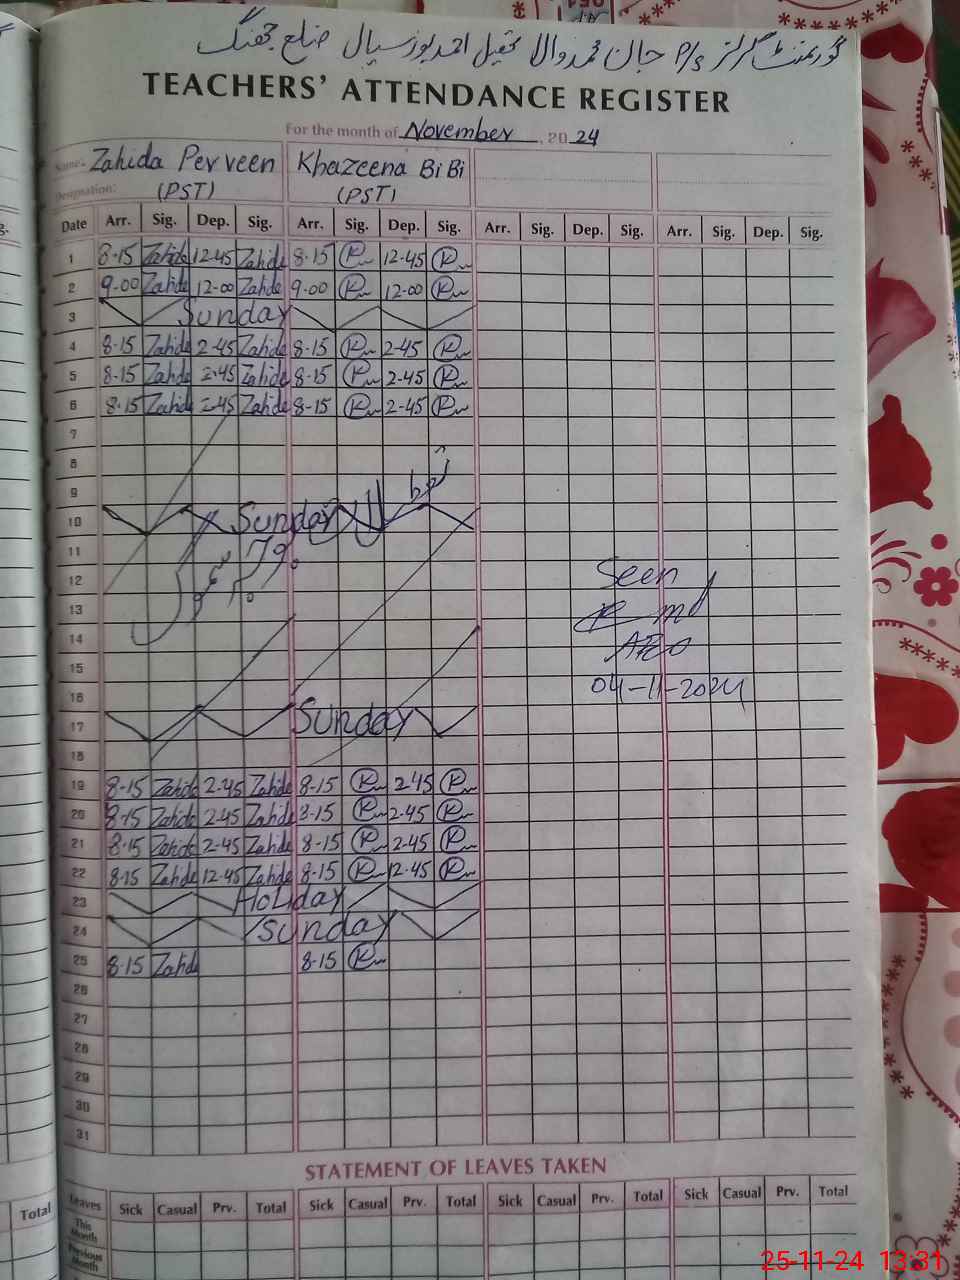 گورنمنٹ گرلز P/S جان محمد والا تحصیل احمد پور سیال ضلع جھنگ
TEACHERS' ATTENDANCE REGISTER
For the month of November, 2024
Name: Zahida Perveen Khazeena BiBi
Designation: (PST) (PST)
Date Arr. Sig. Dep. Sig. Arr. Sig. Dep. Sig. Arr. Sig. Dep. Sig. Arr. Sig. Dep. Sig.
1 8-15 Zahida 12-45 Zahida 8-15 12-45
2 9-00 Zahida 12-00 Zahida 9-00 12-00
3 Sunday
4 8-15 Zahida 2-45 Zahida 8-15 2-45
5 8-15 Zahida 2-45 Zahida 8-15 2-45
6 8-15 Zahida 2-45 Zahida 8-15 2-45
7
8
9
10 Sunday
11
12 Seen
13
14 AEO
15
16 04-11-2024
17 Sunday
18
19 8-15 Zahida 2-45 Zahida 8-15 2-45
20 8-15 Zahida 2-45 Zahida 8-15 2-45
21 8-15 Zahida 2-45 Zahida 8-15 2-45
22 8-15 Zahida 12-45 Zahida 8-15 12-45
23 Holiday
24 Sunday
25 8-15 Zahida 8-15
26
27
28
29
30
31
STATEMENT OF LEAVES TAKEN
Leaves Sick Casual Prv. Total Sick Casual Prv. Total Sick Casual Prv. Total Sick Casual Prv. Total
This Month
Previous Month
Total
25-11-24 13:31